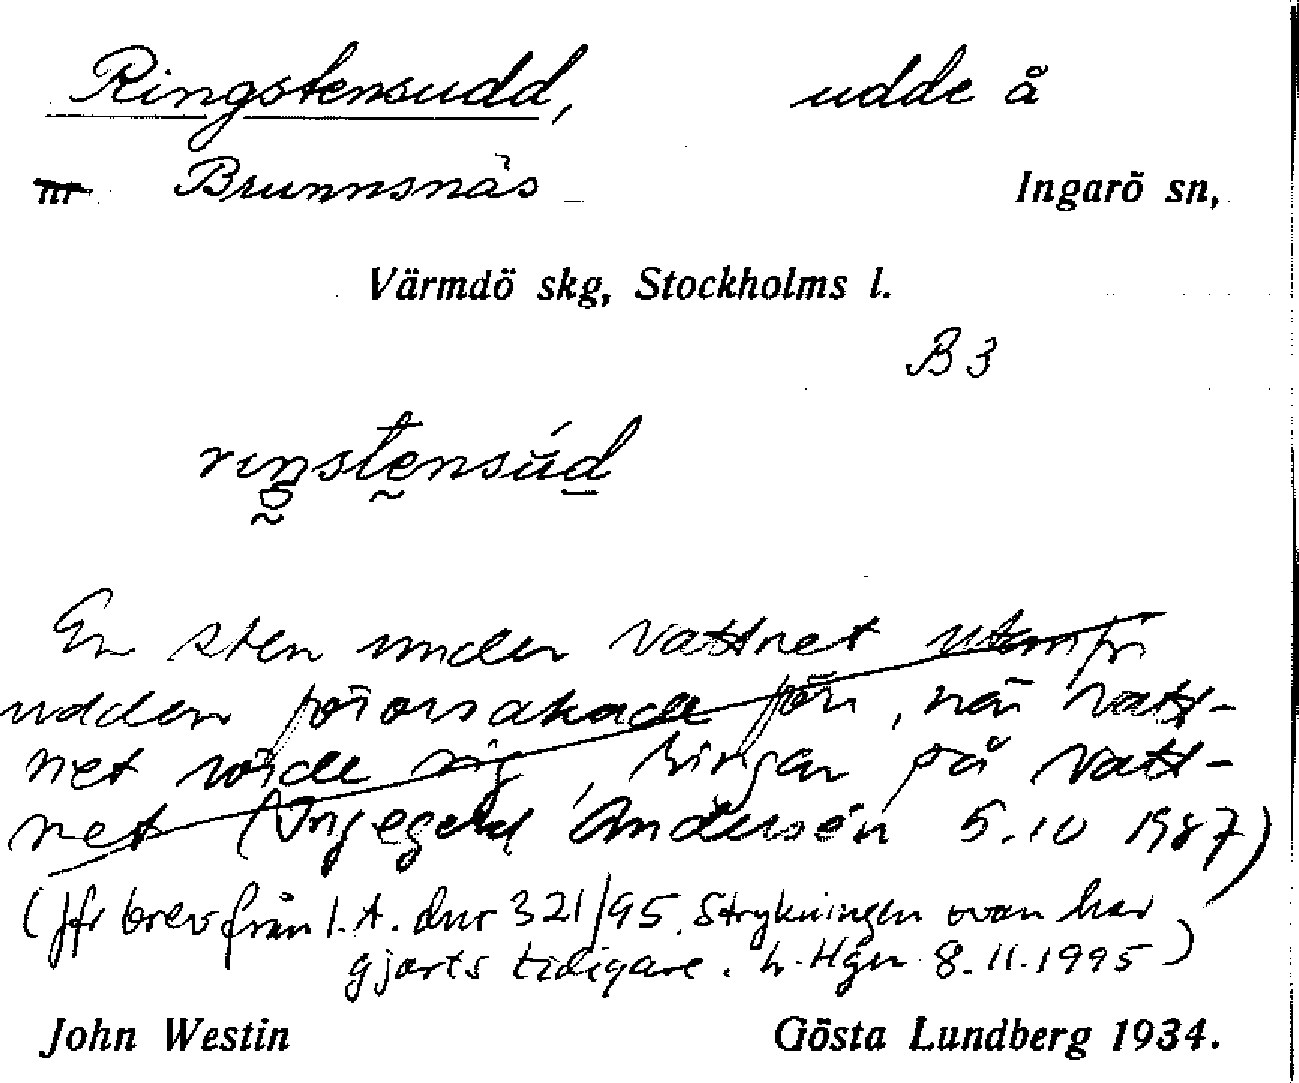 Ringstensudd, udde å
nr Brunnsnäs Ingarö sn,
Värmdö skg, Stockholms l.
B3
rıŋstensùd
En sten under vattnet utanför
udden förorsakade förr, när vatt-
net rörde sig, ringar på vatt-
net (Ingegerd Andersén 5.10 1987)
(Jfr brev från I.A. dnr 321/95. Strykningen ovan har
gjorts tidigare. L. Hgn 8.11.1995)
John Westin Gösta Lundberg 1934.